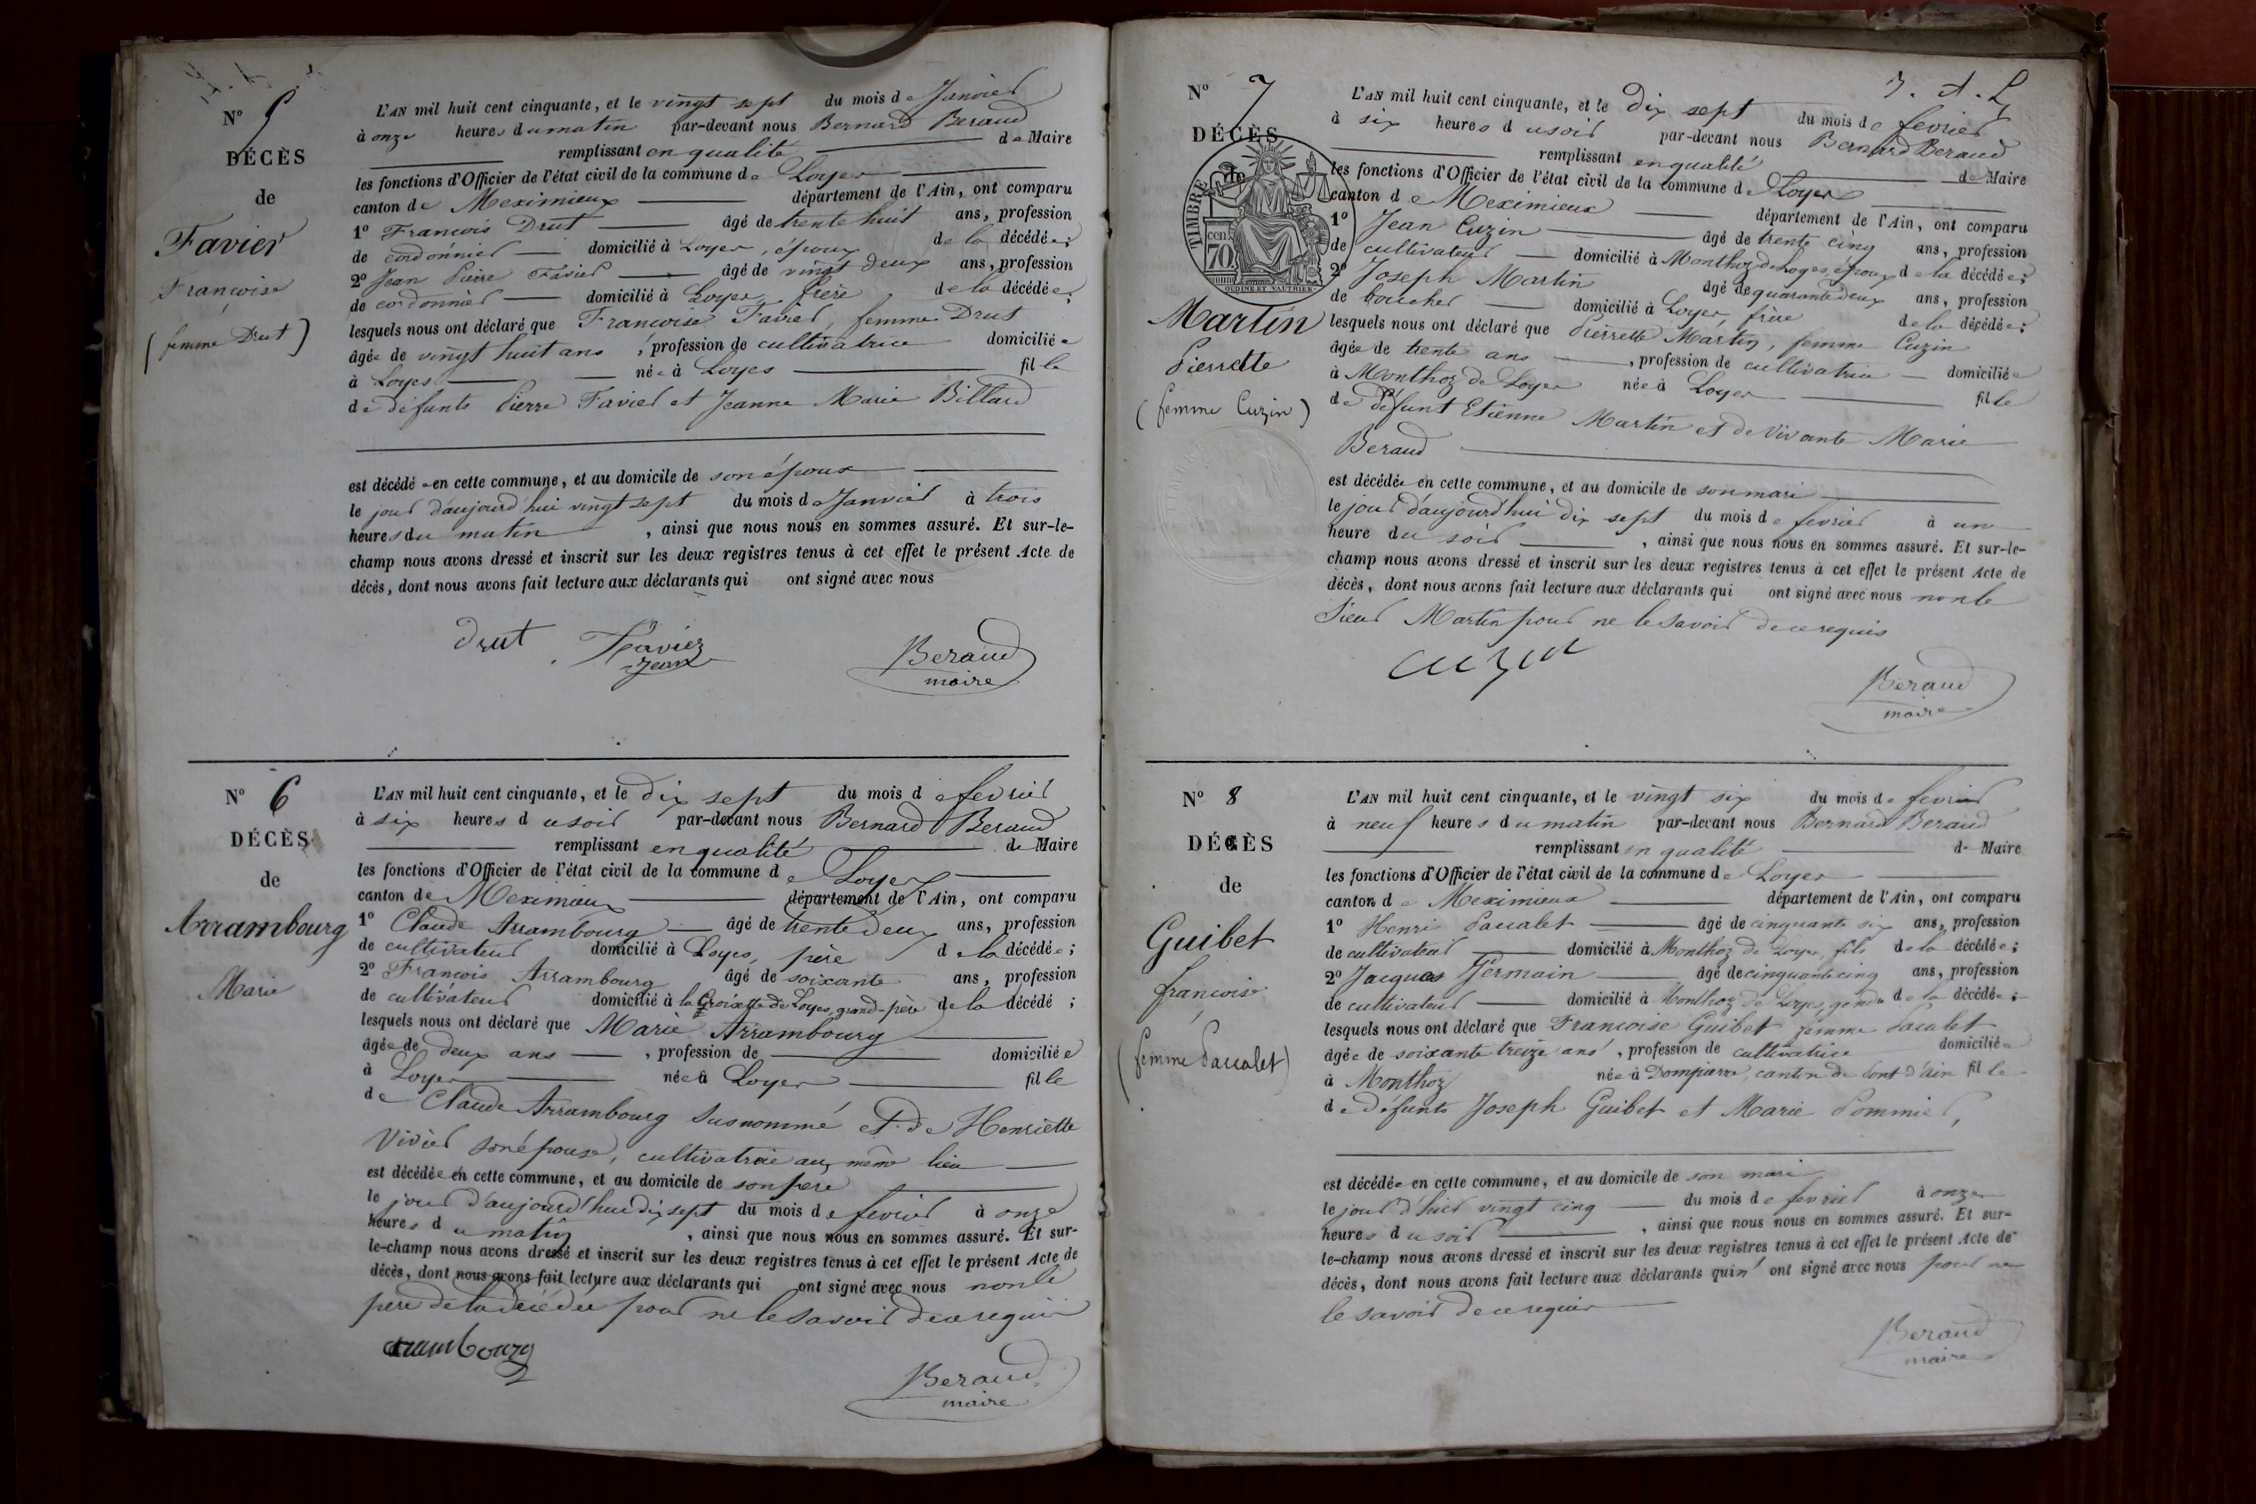 N° 5
DÉCÈS
de
Favier
Françoise
(femme Drut)
L'AN mil huit cent cinquante, et le vingt sept du mois de Janvier
à onze heures du matin par-devant nous Bernard Beraud
remplissant en qualité de Maire
les fonctions d'Officier de l'état civil de la commune de Loyes
canton de Meximieux département de l'Ain, ont comparu
1° Francois Drut âgé de trente huit ans, profession
de cordonnier domicilié à Loyes, époux de la décédée;
2° Jean Pierre Favier âgé de vingt deux ans, profession
de cordonnier domicilié à Loyes, frère de la décédée;
lesquels nous ont déclaré que Francoise Favier, femme Drut
âgée de vingt huit ans, profession de cultivatrice domiciliée
à Loyes née à Loyes fille
de défunts Pierre Favier et Jeanne Marie Billard
est décédée en cette commune, et au domicile de son époux
le jour d'aujourd'hui vingt sept du mois de Janvier à trois
heures du matin, ainsi que nous nous en sommes assuré. Et sur-le-
champ nous avons dressé et inscrit sur les deux registres tenus à cet effet le présent Acte de
décès, dont nous avons fait lecture aux déclarants qui ont signé avec nous
Drut Favier
Jean
Beraud
maire
N° 6
DÉCÈS
de
Arrambourg
Marie
L'AN mil huit cent cinquante, et le dix sept du mois de fevrier
à six heures du soir par-devant nous Bernard Beraud
remplissant en qualité de Maire
les fonctions d'Officier de l'état civil de la commune de Loyes
canton de Meximieux département de l'Ain, ont comparu
1° Claude Arrambourg âgé de trente deux ans, profession
de cultivateur domicilié à Loyes, père de la décédée;
2° Francois Arrambourg âgé de soixante ans, profession
de cultivateur domicilié à la Croisette de Loyes, grand-père de la décédé;
lesquels nous ont déclaré que Marie Arrambourg
âgée de deux ans, profession de domiciliée
à Loyes née à Loyes fille
de Claude Arrambourg susnommé et de Henriette
Vivier son épouse, cultivatrice au même lieu
est décédée en cette commune, et au domicile de son père
le jour d'aujourd'hui dix sept du mois de fevrier à onze
heures du matin, ainsi que nous nous en sommes assuré. Et sur-
le-champ nous avons dressé et inscrit sur les deux registres tenus à cet effet le présent Acte de
décès, dont nous avons fait lecture aux déclarants qui ont signé avec nous non le
père de la décédée pour ne le savoir de ce requis
arambourg
Beraud
maire
7. A. L
N° 7
DÉCÈS
de
TIMBRE
cen. 70
Martin
Pierrette
(femme Cuzin)
L'AN mil huit cent cinquante, et le dix sept du mois de fevrier
à six heures du soir par-devant nous Bernard Beraud
remplissant en qualité de Maire
les fonctions d'Officier de l'état civil de la commune de Loyes
canton de Meximieux département de l'Ain, ont comparu
1° Jean Cuzin âgé de trente cinq ans, profession
de cultivateur domicilié à Monthoz de Loyes, époux de la décédée;
2° Joseph Martin âgé de quarante deux ans, profession
de boucher domicilié à Loyes, frère de la décédée;
lesquels nous ont déclaré que Pierrette Martin, femme Cuzin
âgée de trente ans, profession de cultivatrice domiciliée
à Monthoz de Loyes née à Loyes fille
de défunt Etienne Martin et de vivante Marie
Beraud
est décédée en cette commune, et au domicile de son mari
le jour d'aujourd'hui dix sept du mois de fevrier à une
heure du soir, ainsi que nous nous en sommes assuré. Et sur-le-
champ nous avons dressé et inscrit sur les deux registres tenus à cet effet le présent Acte de
décès, dont nous avons fait lecture aux déclarants qui ont signé avec nous non le
Sieur Martin pour ne le savoir de ce requis
cuzin
Beraud
maire
N° 8
DÉCÈS
de
Guibet
françoise
(femme Paccalet)
L'AN mil huit cent cinquante, et le vingt six du mois de fevrier
à neuf heures du matin par-devant nous Bernard Beraud
remplissant en qualité de Maire
les fonctions d'Officier de l'état civil de la commune de Loyes
canton de Meximieux département de l'Ain, ont comparu
1° Henri Paccalet âgé de cinquante six ans, profession
de cultivateur domicilié à Monthoz de Loyes, fils de la décédée;
2° Jacques Germain âgé de cinquante cinq ans, profession
de cultivateur domicilié à Monthoz de Loyes, gendre de la décédée;
lesquels nous ont déclaré que Francoise Guibet femme Pacalet
âgée de soixante treize ans, profession de cultivatrice domiciliée
à Monthoz née à Dompierre, canton de Pont d'Ain fille
de défunts Joseph Guibet et Marie Pommier,
est décédée en cette commune, et au domicile de son mari
le jour d'hier vingt cinq du mois de fevrier à onze
heures du soir, ainsi que nous nous en sommes assuré. Et sur-
le-champ nous avons dressé et inscrit sur les deux registres tenus à cet effet le présent Acte de
décès, dont nous avons fait lecture aux déclarants qui n'ont signé avec nous pour ne
le savoir de ce requis
Beraud
maire